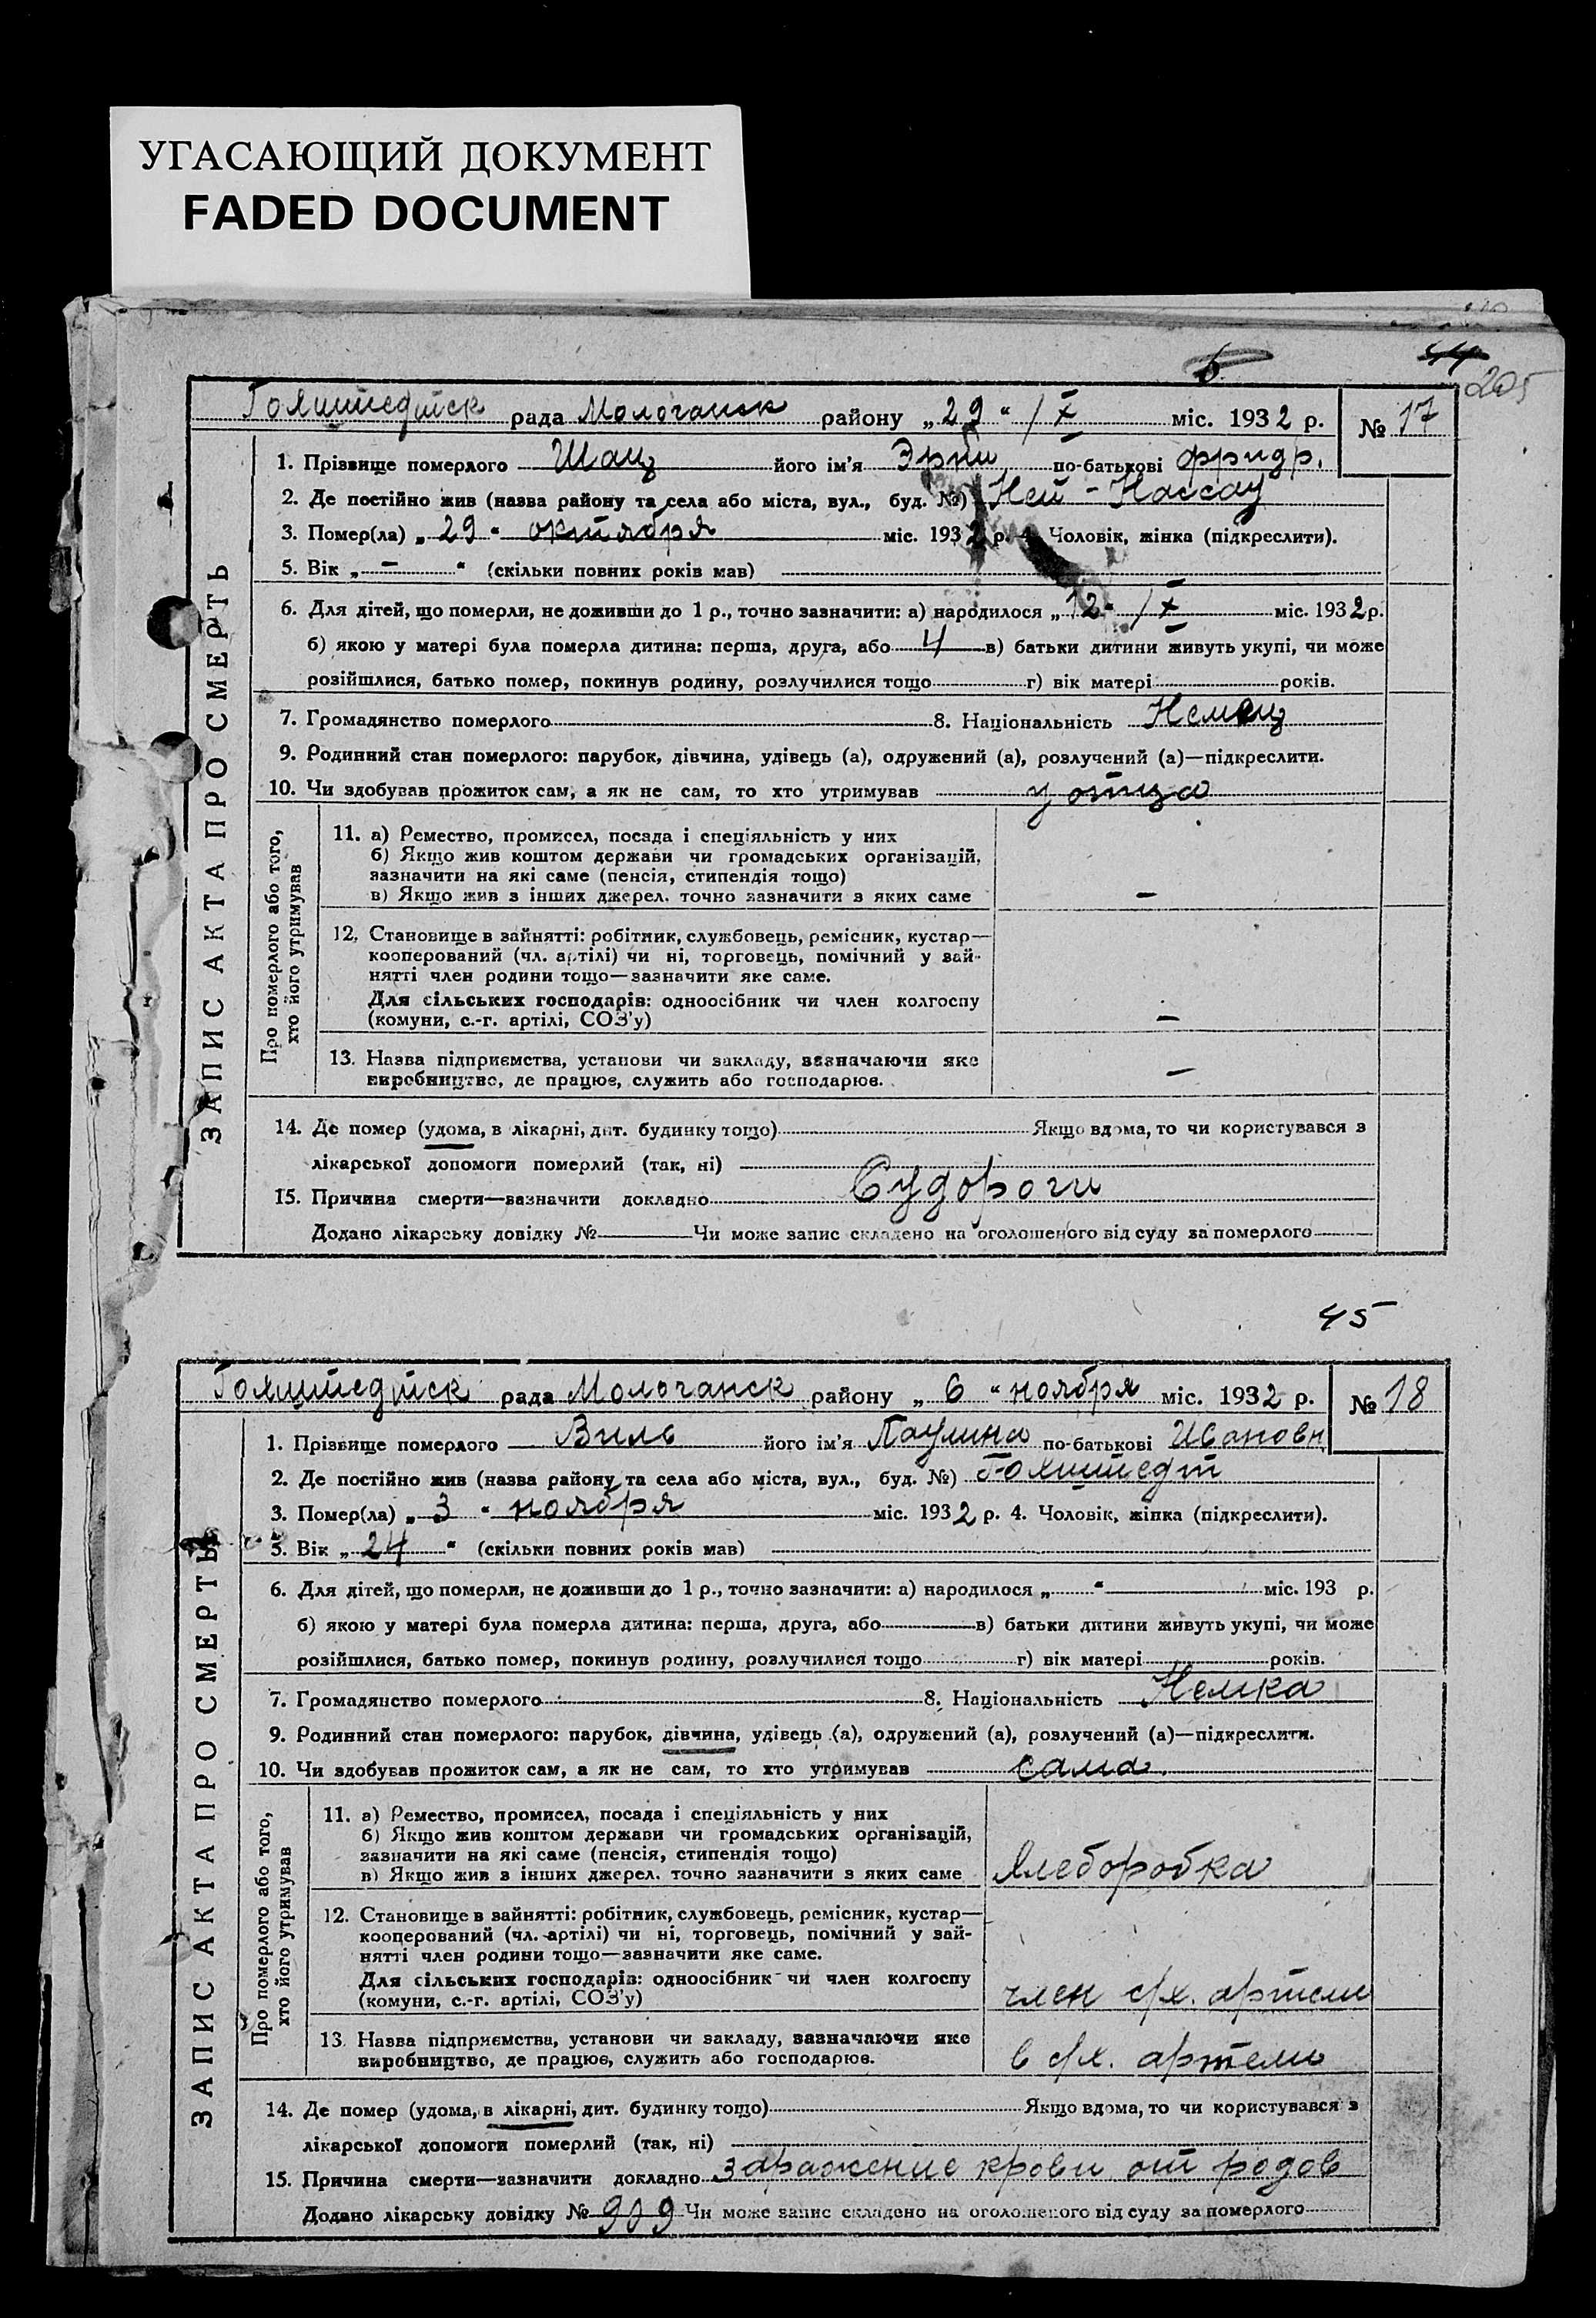 УГАСАЮЩИЙ ДОКУМЕНТ
FADED DOCUMENT
44
205
рада Молочанск району „29“ /X міс. 1932 р. № 17
ЗАПИС АКТА ПРО СМЕРТЬ
1. Прізвище померлого Шац його ім'я по-батькові Фридр.
2. Де постійно жив (назва району та села або міста, вул., буд. №) Ней-Нассау
3. Помер(ла) „29“ октября міс. 1932 р. 4. Чоловік, жінка (підкреслити).
5. Вік „—“ (скільки повних років мав)
6. Для дітей, що померли, не доживши до 1 р., точно зазначити: а) народилося „12“ /X міс. 1932 р.
б) якою у матері була померла дитина: перша, друга, або 4 в) батьки дитини живуть укупі, чи може
розійшлися, батько помер, покинув родину, розлучилися тощо г) вік матері років.
7. Громадянство померлого 8. Національність Немец
9. Родинний стан померлого: парубок, дівчина, удівець (а), одружений (а), розлучений (а)—підкреслити.
10. Чи здобував прожиток сам, а як не сам, то хто утримував у отца
Про померлого або того,
хто його утримував
11. а) Ремество, промисел, посада і спеціяльність у них
б) Якщо жив коштом держави чи громадських організацій,
зазначити на які саме (пенсія, стипендія тощо)
в) Якщо жив з інших джерел. точно зазначити з яких саме —
12. Становище в зайнятті: робітник, службовець, ремісник, кустар—
кооперований (чл. артілі) чи ні, торговець, помічний у зай-
нятті член родини тощо—зазначити яке саме.
Для сільських господарів: одноосібник чи член колгоспу
(комуни, с.-г. артілі, СОЗ'у) —
13. Назва підприємства, установи чи закладу, зазначаючи яке
виробництво, де працює, служить або господарює. —
14. Де помер (удома, в лікарні, дит. будинку тощо) Якщо вдома, то чи користувався з
лікарської допомоги померлий (так, ні)
15. Причина смерти—зазначити докладно Судороги
Додано лікарську довідку № Чи може запис складено на оголошеного від суду за померлого
45
рада Молочанск району „6“ ноября міс. 1932 р. № 18
ЗАПИС АКТА ПРО СМЕРТЬ
1. Прізвище померлого Виль його ім'я Паулина по-батькові Ивановн
2. Де постійно жив (назва району та села або міста, вул., буд. №) Гохштедт
3. Помер(ла) „3“ ноября міс. 1932 р. 4. Чоловік, жінка (підкреслити).
5. Вік „24“ (скільки повних років мав)
6. Для дітей, що померли, не доживши до 1 р., точно зазначити: а) народилося „ “ міс. 193 р.
б) якою у матері була померла дитина: перша, друга, або в) батьки дитини живуть укупі, чи може
розійшлися, батько помер, покинув родину, розлучилися тощо г) вік матері років.
7. Громадянство померлого 8. Національність Немка
9. Родинний стан померлого: парубок, дівчина, удівець (а), одружений (а), розлучений (а)—підкреслити.
10. Чи здобував прожиток сам, а як не сам, то хто утримував сама.
Про померлого або того,
хто його утримував
11. а) Ремество, промисел, посада і спеціяльність у них
б) Якщо жив коштом держави чи громадських організацій,
зазначити на які саме (пенсія, стипендія тощо)
в) Якщо жив з інших джерел. точно зазначити з яких саме Хлеборобка
12. Становище в зайнятті: робітник, службовець, ремісник, кустар—
кооперований (чл. артілі) чи ні, торговець, помічний у зай-
нятті член родини тощо—зазначити яке саме.
Для сільських господарів: одноосібник чи член колгоспу
(комуни, с.-г. артілі, СОЗ'у) член с/х. артели
13. Назва підприємства, установи чи закладу, зазначаючи яке
виробництво, де працює, служить або господарює. в с/х. артели
14. Де помер (удома, в лікарні, дит. будинку тощо) Якщо вдома, то чи користувався з
лікарської допомоги померлий (так, ні)
15. Причина смерти—зазначити докладно заражение крови от родов
Додано лікарську довідку № 909 Чи може запис складено на оголошеного від суду за померлого